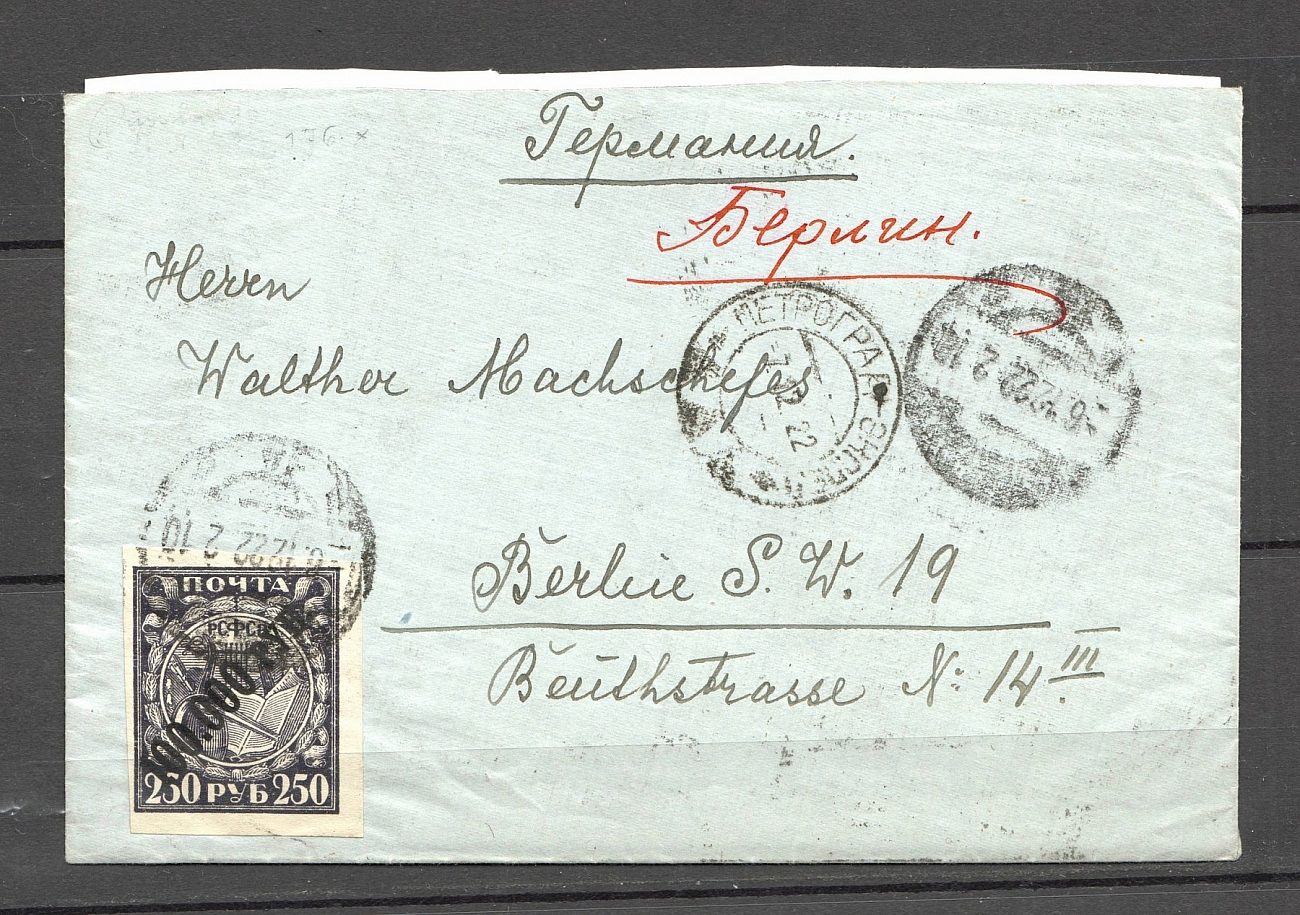 176. x
Германия.
Берлин.
Herrn
Walther
ПЕТРОГРАД
-7.12 22
6.12 22 2 10
6.12 22 2 10
Berlin S. W. 19
Beuthstrasse N: 14 III
ПОЧТА
РСФСР
100.000
250 РУБ 250